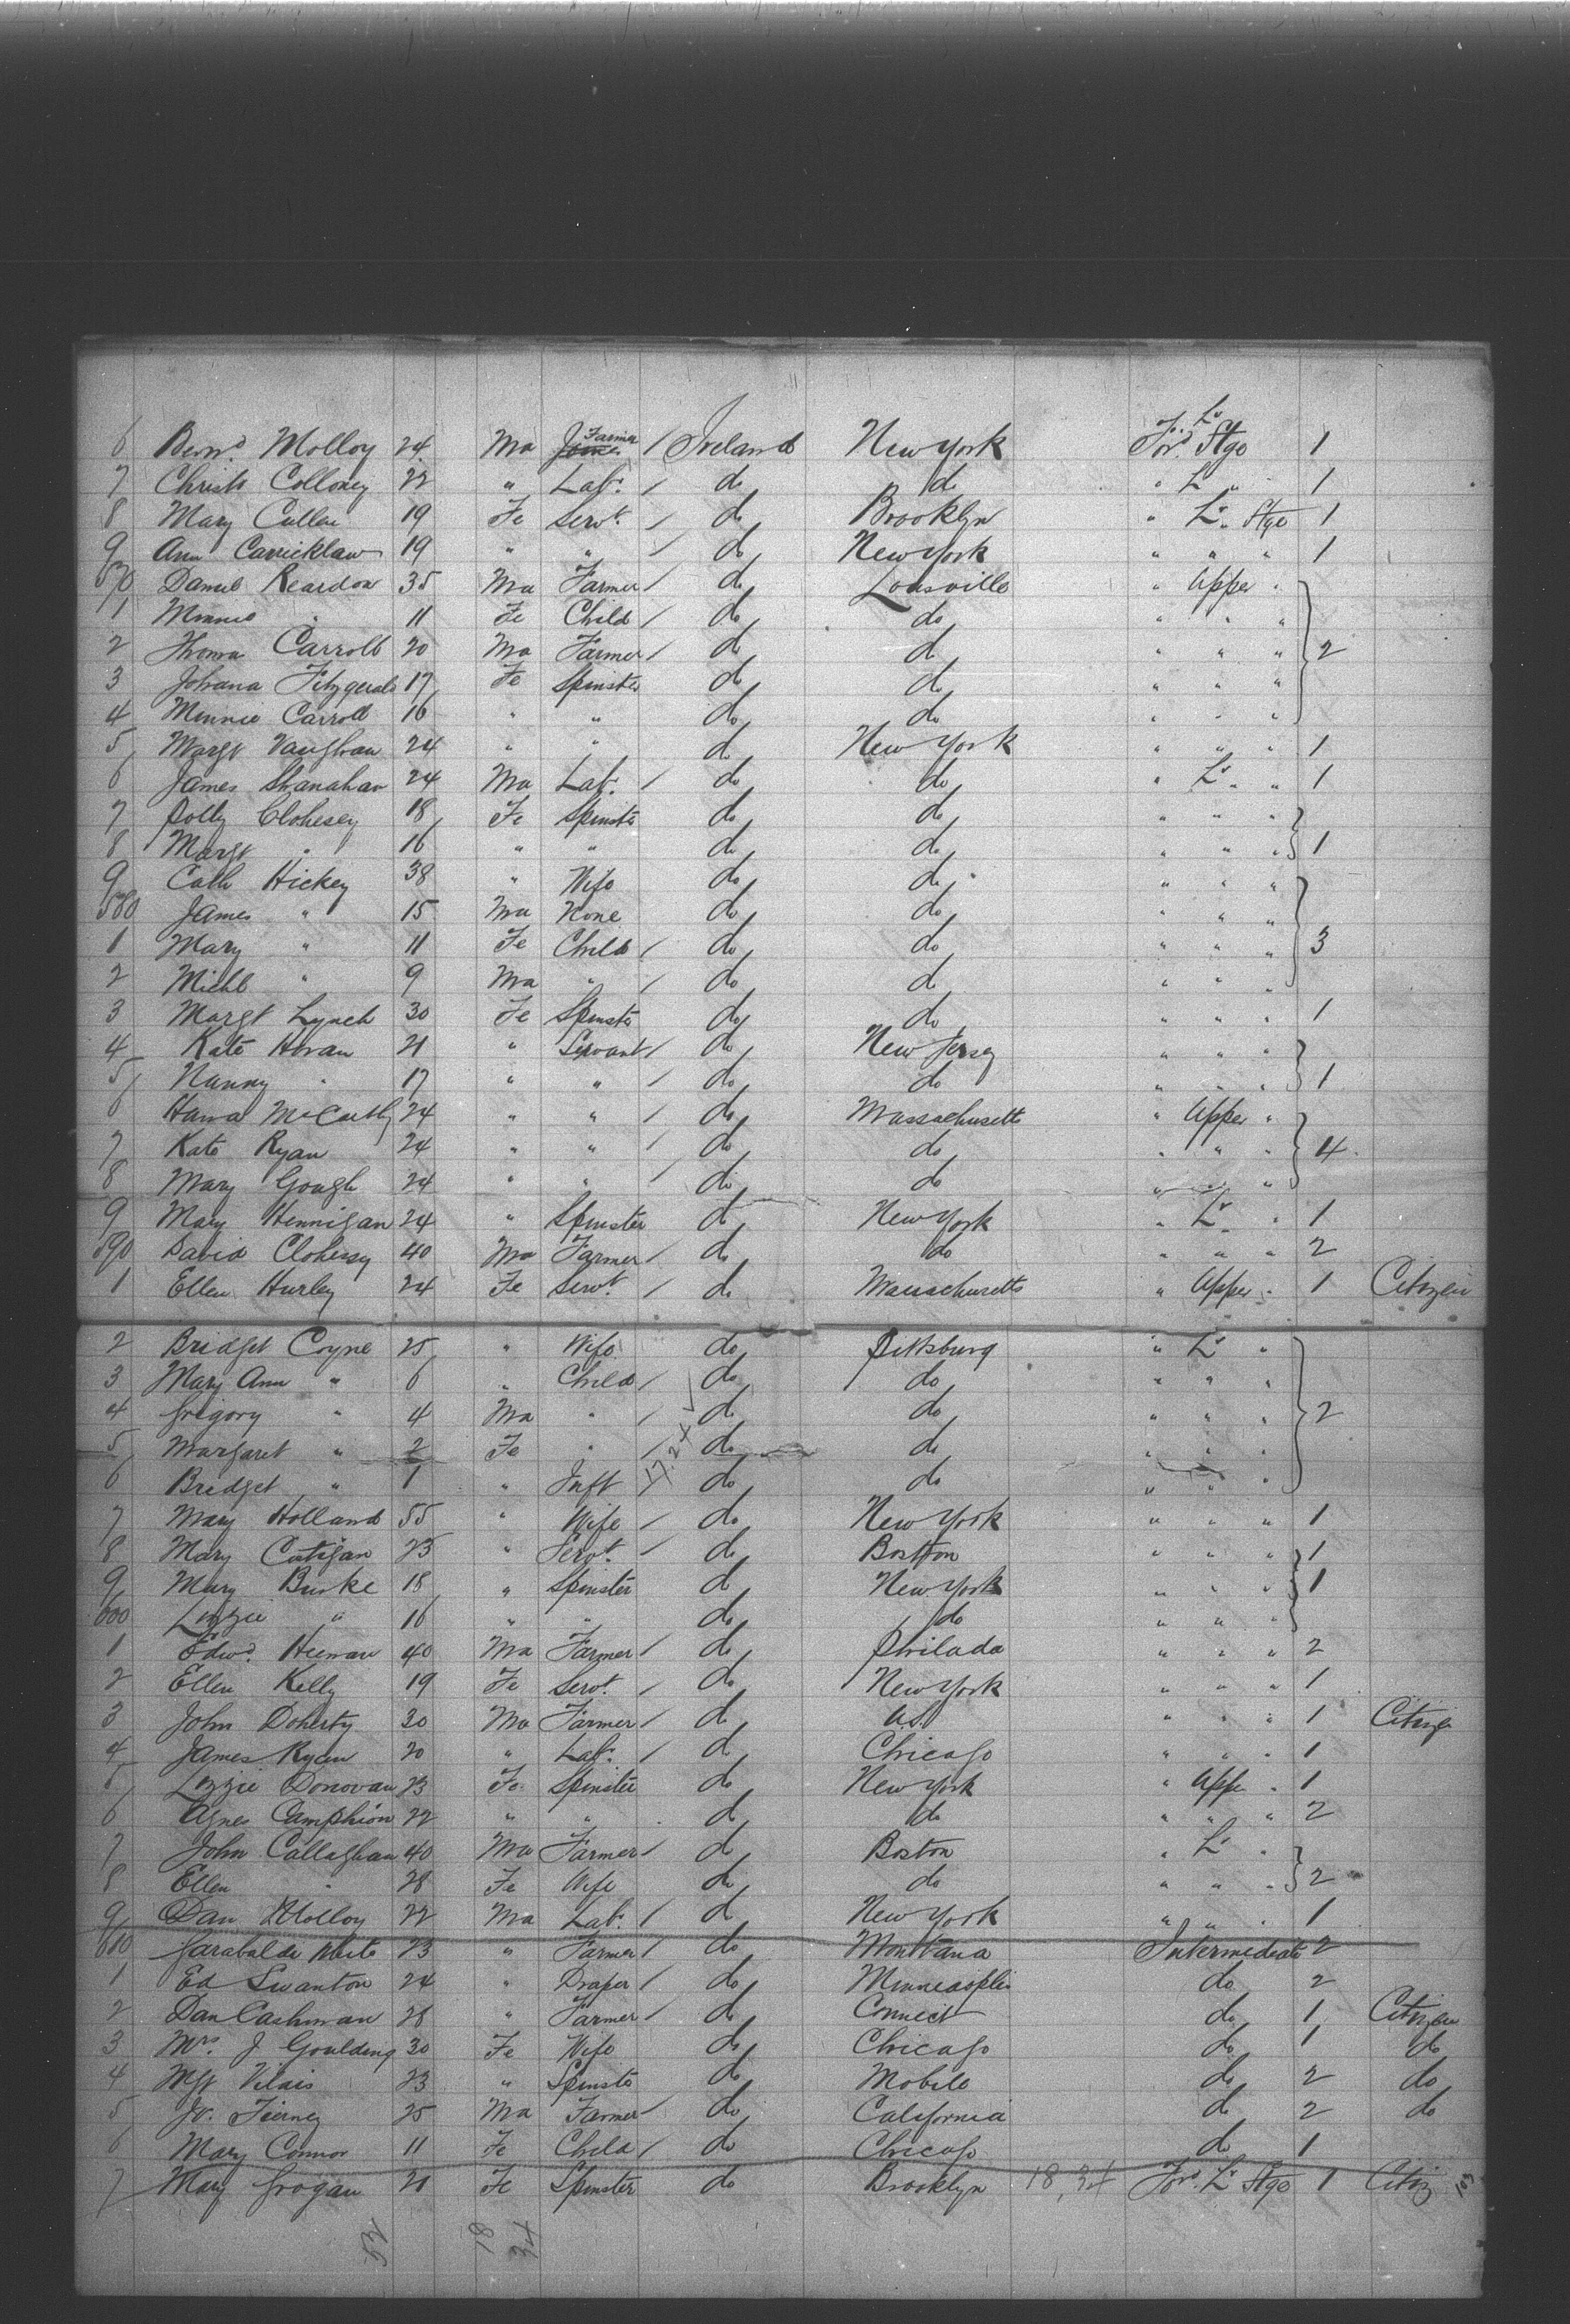 6 Bernd Molloy 24 Ma Farmer / Ireland New York Ford Lr Stge 1
7 Christr Colloney 22 " Labr / do do " Lr " 1
8 Mary Cullen 19 Fe Servt / do Brooklyn " Lr Stge 1
9 Ann Carricklaw 19 " " / do New York " " " 1
570 Daniel Reardon 35 Ma Farmer / do Louisville " Upper "
1 Minnie " 11 Fe Child / do do " " "
2 Thomas Carroll 20 Ma Farmer / do do " " " 2
3 Johana Fitzgerald 17 Fe Spinster do do " " "
4 Minnie Carroll 16 " " do do " " "
5 Margt Vaughan 24 " " do New York " " " 1
6 James Shanahan 24 Ma Labr / do do " Lr " " 1
7 Polly Clohesey 18 Fe Spinster do do " " "
8 Margt " 16 " " do do " " " 1
9 Cath Hickey 38 " Wife do do " " "
580 James " 15 Ma None do do " " "
1 Mary " 11 Fe Child / do do " " " 3
2 Michl " 9 Ma " / do do " " "
3 Margt Lynch 30 Fe Spinster do do " " " 1
4 Kate Horan 21 " Servant / do New Jersey " " "
5 Nanny " 17 " " / do do " " " 1
6 Hanna McCarthy 24 " " / do Massachusetts " Upper "
7 Kate Ryan 24 " " / do do " " " 4
8 Mary Gough 24 " " / do do " " "
9 Mary Hennigan 24 " Spinster do New York " Lr " 1
590 David Clohessy 40 Ma Farmer / do do " " " 2
1 Ellen Hurley 24 Fe Servt / do Massachusetts " Upper " 1 Citizen
2 Bridget Coyne 25 " Wife do Pittsburg " Lr "
3 Mary Ann " 6 " Child / do do " " "
4 Gregory " 4 Ma " / do do " " " 2
5 Margaret " 2 Fe " / do do " " "
6 Bridget " 1 " Inft do do " " "
7 Mary Holland 55 " Wife / do New York " " " 1
8 Mary Catigan 23 " Servt / do Boston " " " 1
9 Mary Burke 18 " Spinster do New York " " " 1
600 Lizzie " 16 " " do do " " "
1 Edwd Heenan 40 Ma Farmer / do Philada " " " 2
2 Ellen Kelly 19 Fe Servt / do New York " " " 1
3 John Doherty 30 Ma Farmer / do U.S. " " " 1 Citizen
4 James Ryan 20 " Labr / do Chicago " " " 1
5 Lizzie Donovan 23 Fe Spinster do New York " Upper " 1
6 Agnes Camphion 22 " " do do " " " 2
7 John Callaghan 40 Ma Farmer / do Boston " Lr "
8 Ellen " 28 Fe Wife do do " " " 2
9 Dan Molloy 22 Ma Labr / do New York " " " 1
610 Garabaldi White 23 " Farmer / do Montana Intermediate 2
1 Ed Swanton 24 " Draper / do Minneapolis do 2
2 Dan Cashman 28 " Farmer / do Connect do 1 Citizen
3 Mrs. J Goulding 30 Fe Wife do Chicago do 1 do
4 23 " Spinster do Mobile do 2 do
5 Jo. Tierney 25 Ma Farmer / do California do 2 do
6 Mary Connor 11 Fe Child / do Chicago do 1
7 Mary Grogan 21 Fe Spinster do Brooklyn 18,34 Ford Lr Stge 1 Citiz 103
52 18 34